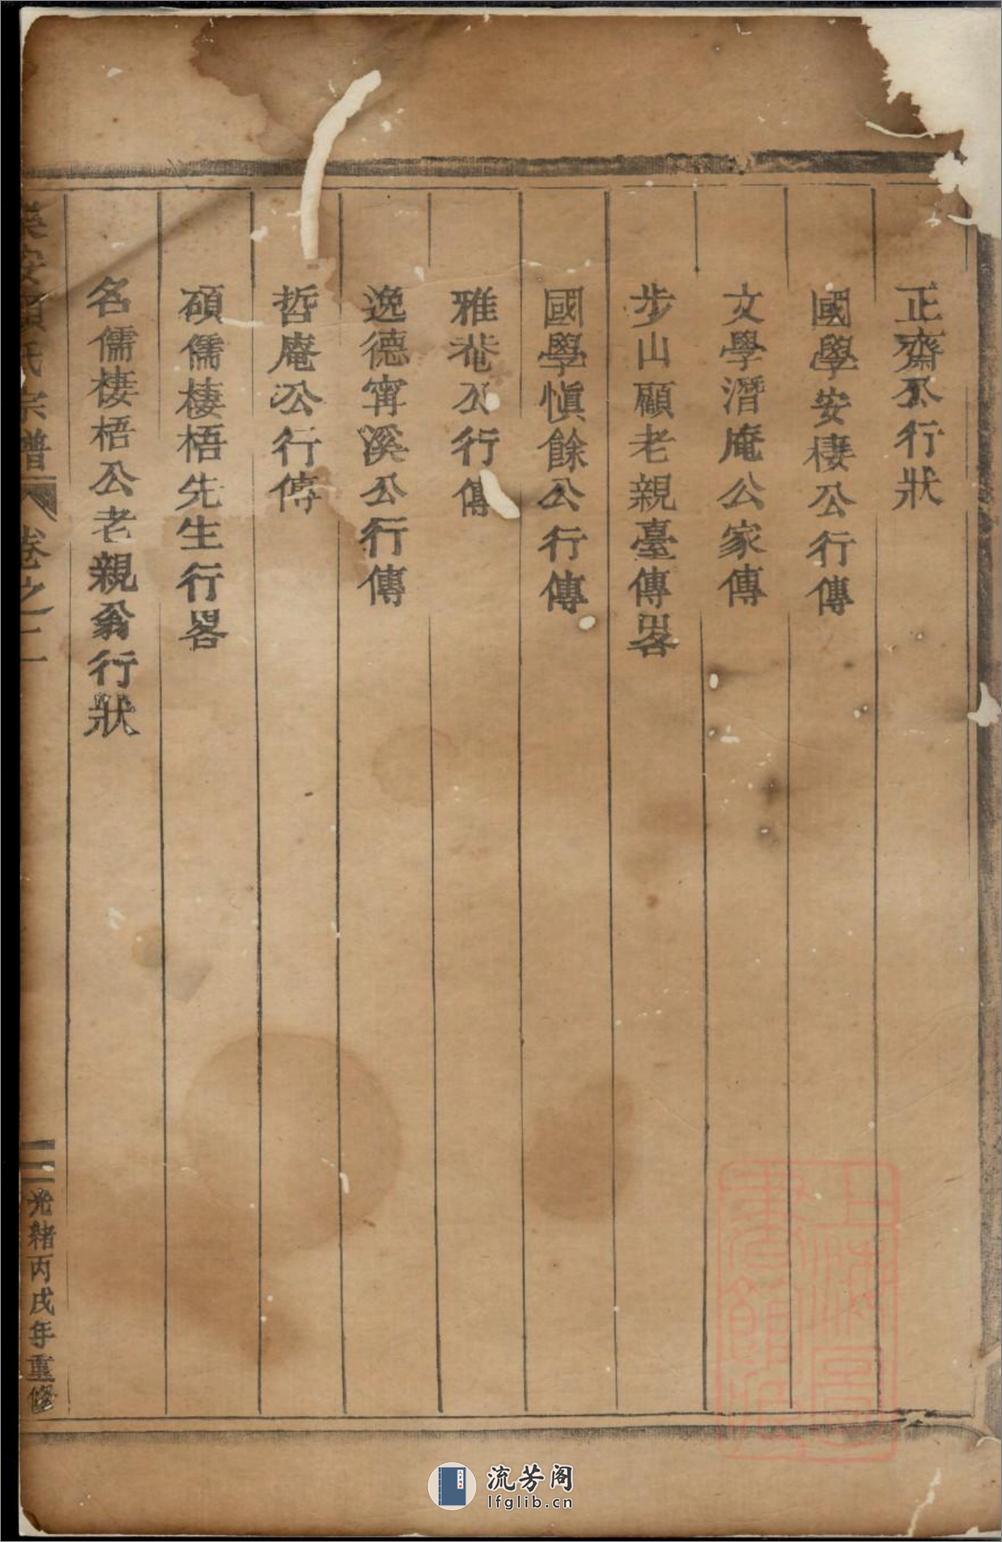 正齋公行狀
國學安棲公行傳
文學潛庵公家傳
步山顧老親臺傳畧
國學慎餘公行傳
雅菴公行傳
逸德甯溪公行傳
哲庵公行傳
碩儒棲梧先生行畧
名儒棲梧公老親翁行狀
氏宗譜
卷之二
光緒丙戌年重修
上海圖書館藏
流芳阁
lfglib.cn